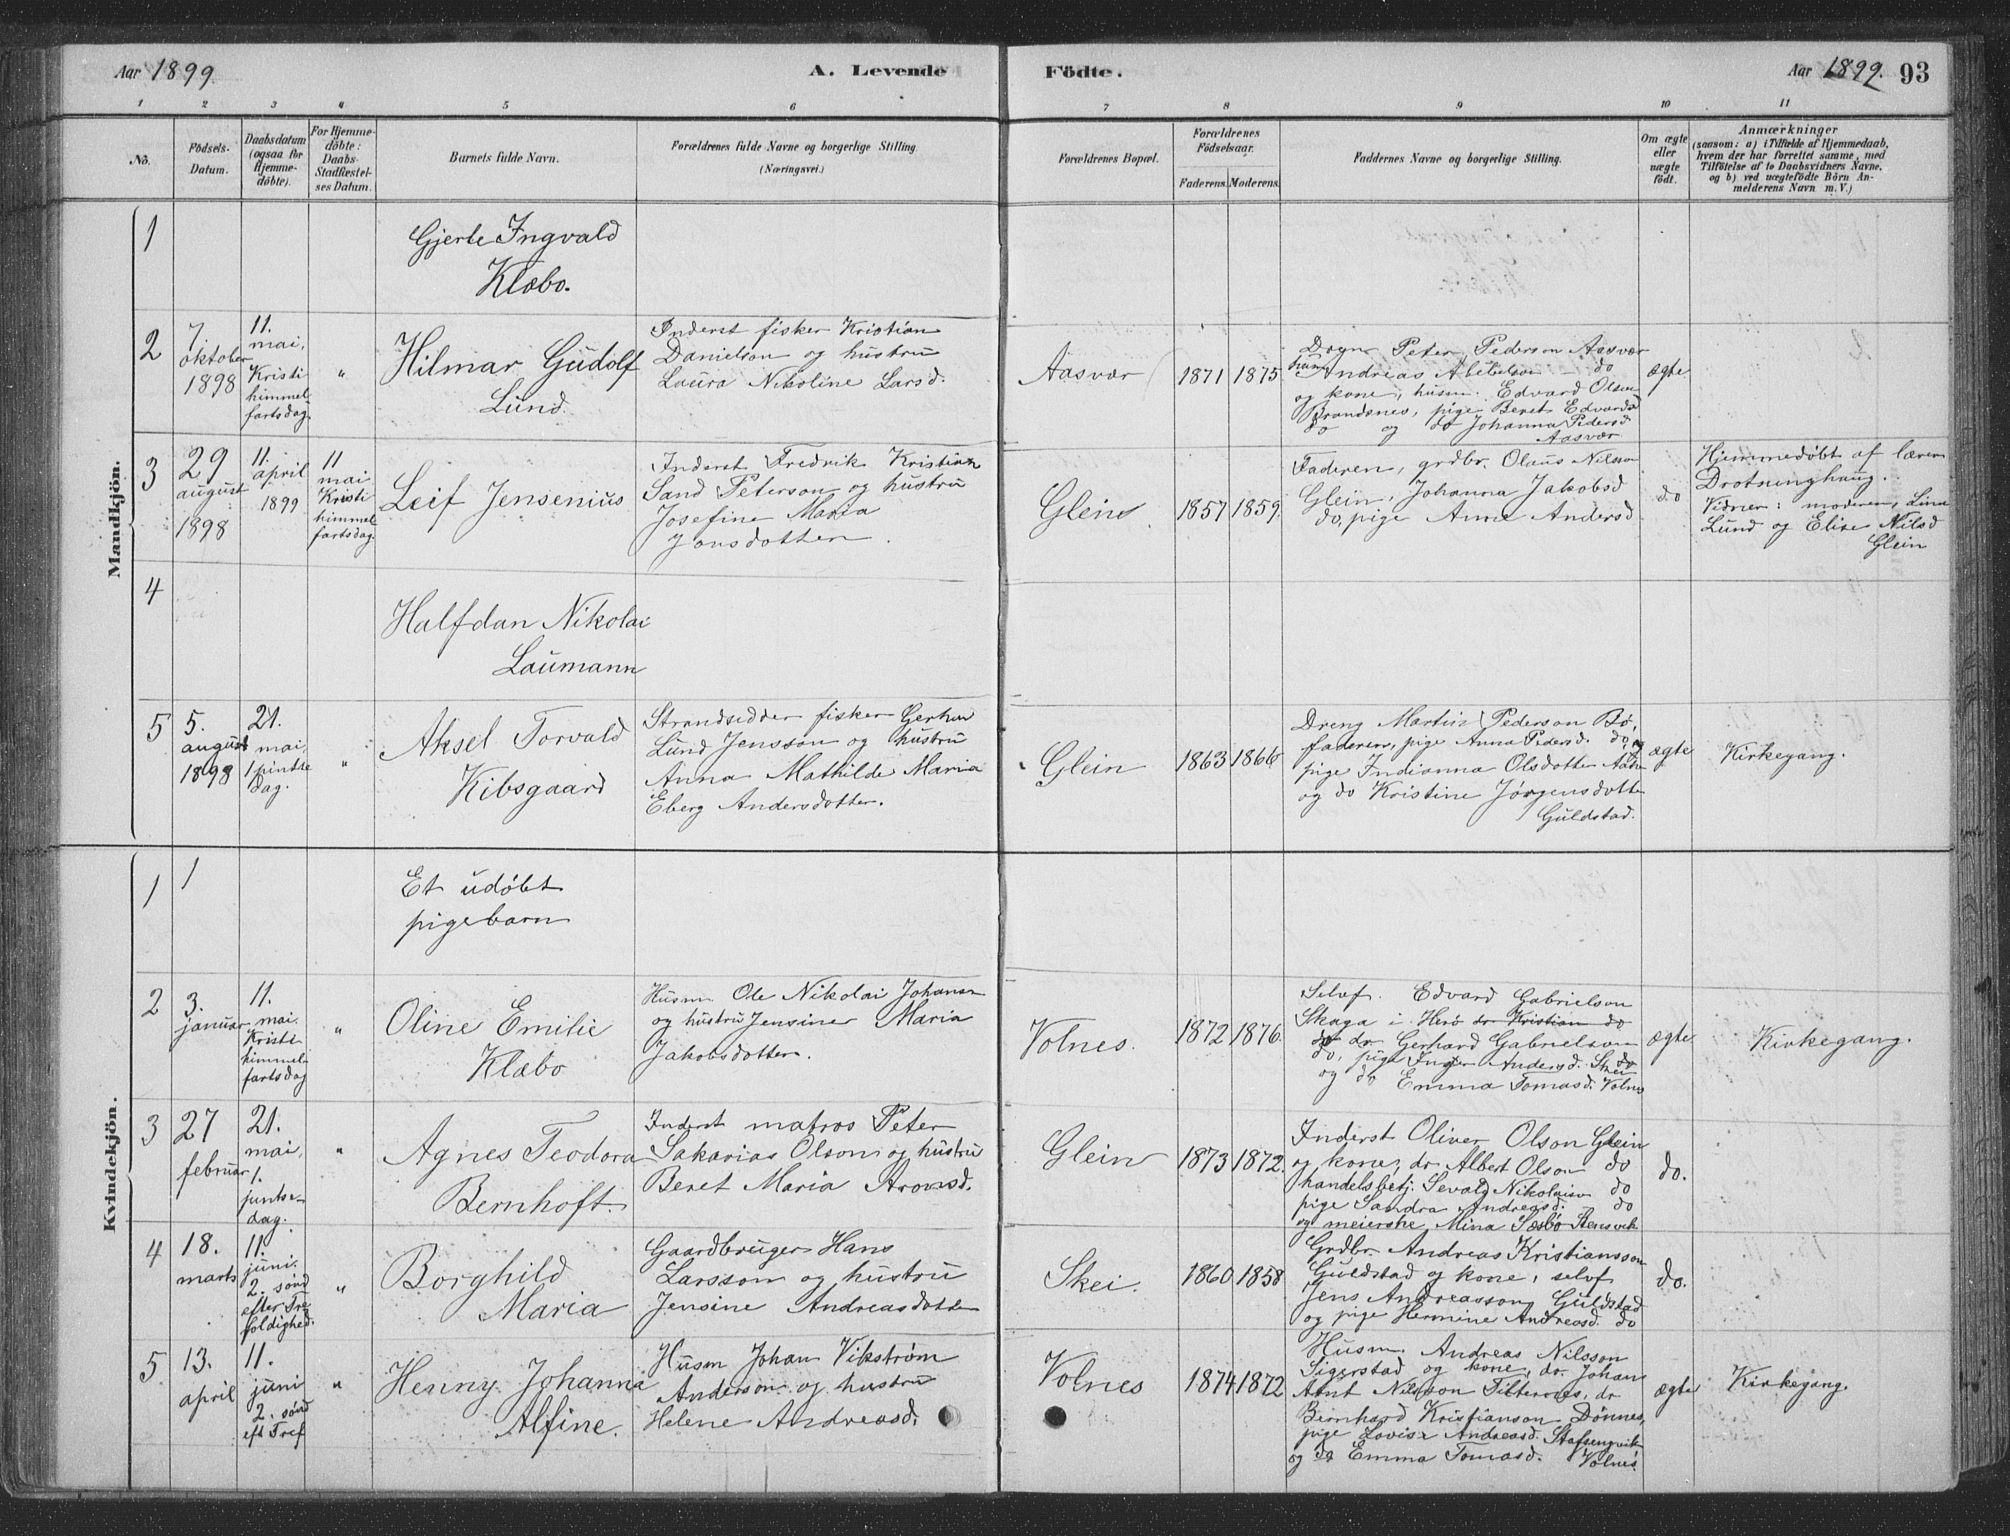 Aar 1899. A. Levende Födte. Aar 1899. 93
1 2 3 4 5 6 7 8 9 10 11
No.
Födsels-
Datum.
Daabsdatum
(ogsaa for
Hjemme-
döbte).
For Hjemme-
döbte:
Daabs-
Stadfæstel-
ses Datum.
Barnets fulde Navn.
Forældrenes fulde Navne og borgerlige Stilling
(Næringsvei.)
Forældrenes Bopæl.
Forældrenes
Födselsaar.
Faderens. Moderens.
Faddernes Navne og borgerlige Stilling.
Om ægte
eller
uægte
födt.
Anmærkninger
(saasom: a) i Tilfælde af Hjemmedaab,
hvem der har forrettet samme, med
Tilföielse af to Daabsvidners Navne,
og b) ved uægtefödte Börn An-
melderens Navn m. V.)
Mandkjön.
1
Gjerte Ingvald
Klæbo.
2
7.
oktober
1898
11.
mai,
Kristi
himmel
fartsdag.
"
Hilmar Gudolf
Lund.
Inderst fisker Kristian
Danielson og hustru
Laura Nikoline Larsd.
Aasvær
1871 1875
Peter Pederson Aasvær
husm Andreas do
og kone, husm. Edvard Olsen
Brandsnes, pige Beret Edvardsd
do og do Johanna Pedersd
Aasvær
ægte
3
29
august
1898
11.
april
1899
11
mai
Kristi
himmel
fartsdag.
Leif Jensenius
Inderst Fredrik Kristian
Sand Peterson og hustru
Josefine Maria
Jonsdotter.
Glein
1857 1859.
Faderen, grdbr. Olaus Nilsson
Glein, Johanna Jakobsd
do, pige Anna Andersd
do
Hjemmedøbt af lærer
Drotsunghaug.
Vidner: moderen, Lina
Lund og Elise Nilsd
Glein
4
Halfdan Nikolai
Laumann
5
5.
august
1898
21.
mai,
1 pintse
dag.
"
Aksel Torvald
Kibsgaard
Strandsidder fisker Gerhar
Lund Jensson og hustru
Anna Mathilde Maria
Eberg Andersdotter.
Glein
1863 1866
Dreng Martin Pederson Bø,
faderen, pige Anna Pedersd. do, og
pige Indianna Olsdotter
og do Kristine Jørgensdotte
Guldstad.
ægte
Kirkegang.
Kvindekjön.
1
1
Et udøbt
pigebarn
2
3.
januar
11.
mai.
Kristi
himmel-
fartsdag
"
Oline Emilie
Klæbo
Husm Ole Nikolai Johanse
og hustru Jensine Maria
Jakobsdotter.
Volnes.
1872 1876.
Selvf. Edvard Gabrielson
Skaga i Herø dr Kristian do
do dr. Gerhard Gabrielson
do, pige Inger Andersd. Skei
og do Emma Tomasd. Volnes
ægte
Kirkegang.
3
27
februar
21.
mai,
1.
pintse-
dag.
"
Agnes Teodora
Bernhoft.
Inderst matros Peter
Sakarias Olson og hustru
Beret Maria Aronsd.
Glein
1873 1872.
Inderst Oliver Olson Glein
og kone, dr Albert Olson do
handelsbetj. Sevald Nikolaisen do
pige Sandra Andreasd. do
og meierske Mina Sæsbø Stensvik
do.
4
18.
marts
11.
juni.
2. sønd
efter Tre
foldighed.
"
Borghild
Maria
Gaardbruger Hans
Larsson og hustru
Jensine Andreasdotter
Skei.
1860 1858
Grdbr. Andreas Kristiansson
Guldstad og kone, selvf
Jens Andreasson Guldstad
og pige Hermine Andreasd. do
do.
5
13.
april
11.
juni
2. sønd
eft Tref
"
Henny Johanna
Alfine.
Husm Johan Vikstrøm
Anderson og hustru
Helene Andreasd.
Volnes
1874 1872
Husm. Andreas Nilsson
Sigerstad og kone, dr. Johan
Arnt Nilsson Tilternes, dr
Bernhard Kristianson Dønnes,
pige Lovise Andreasd. Stafsengvik
og do Emma Tomasd. Volnes.
ægte
Kirkegang.